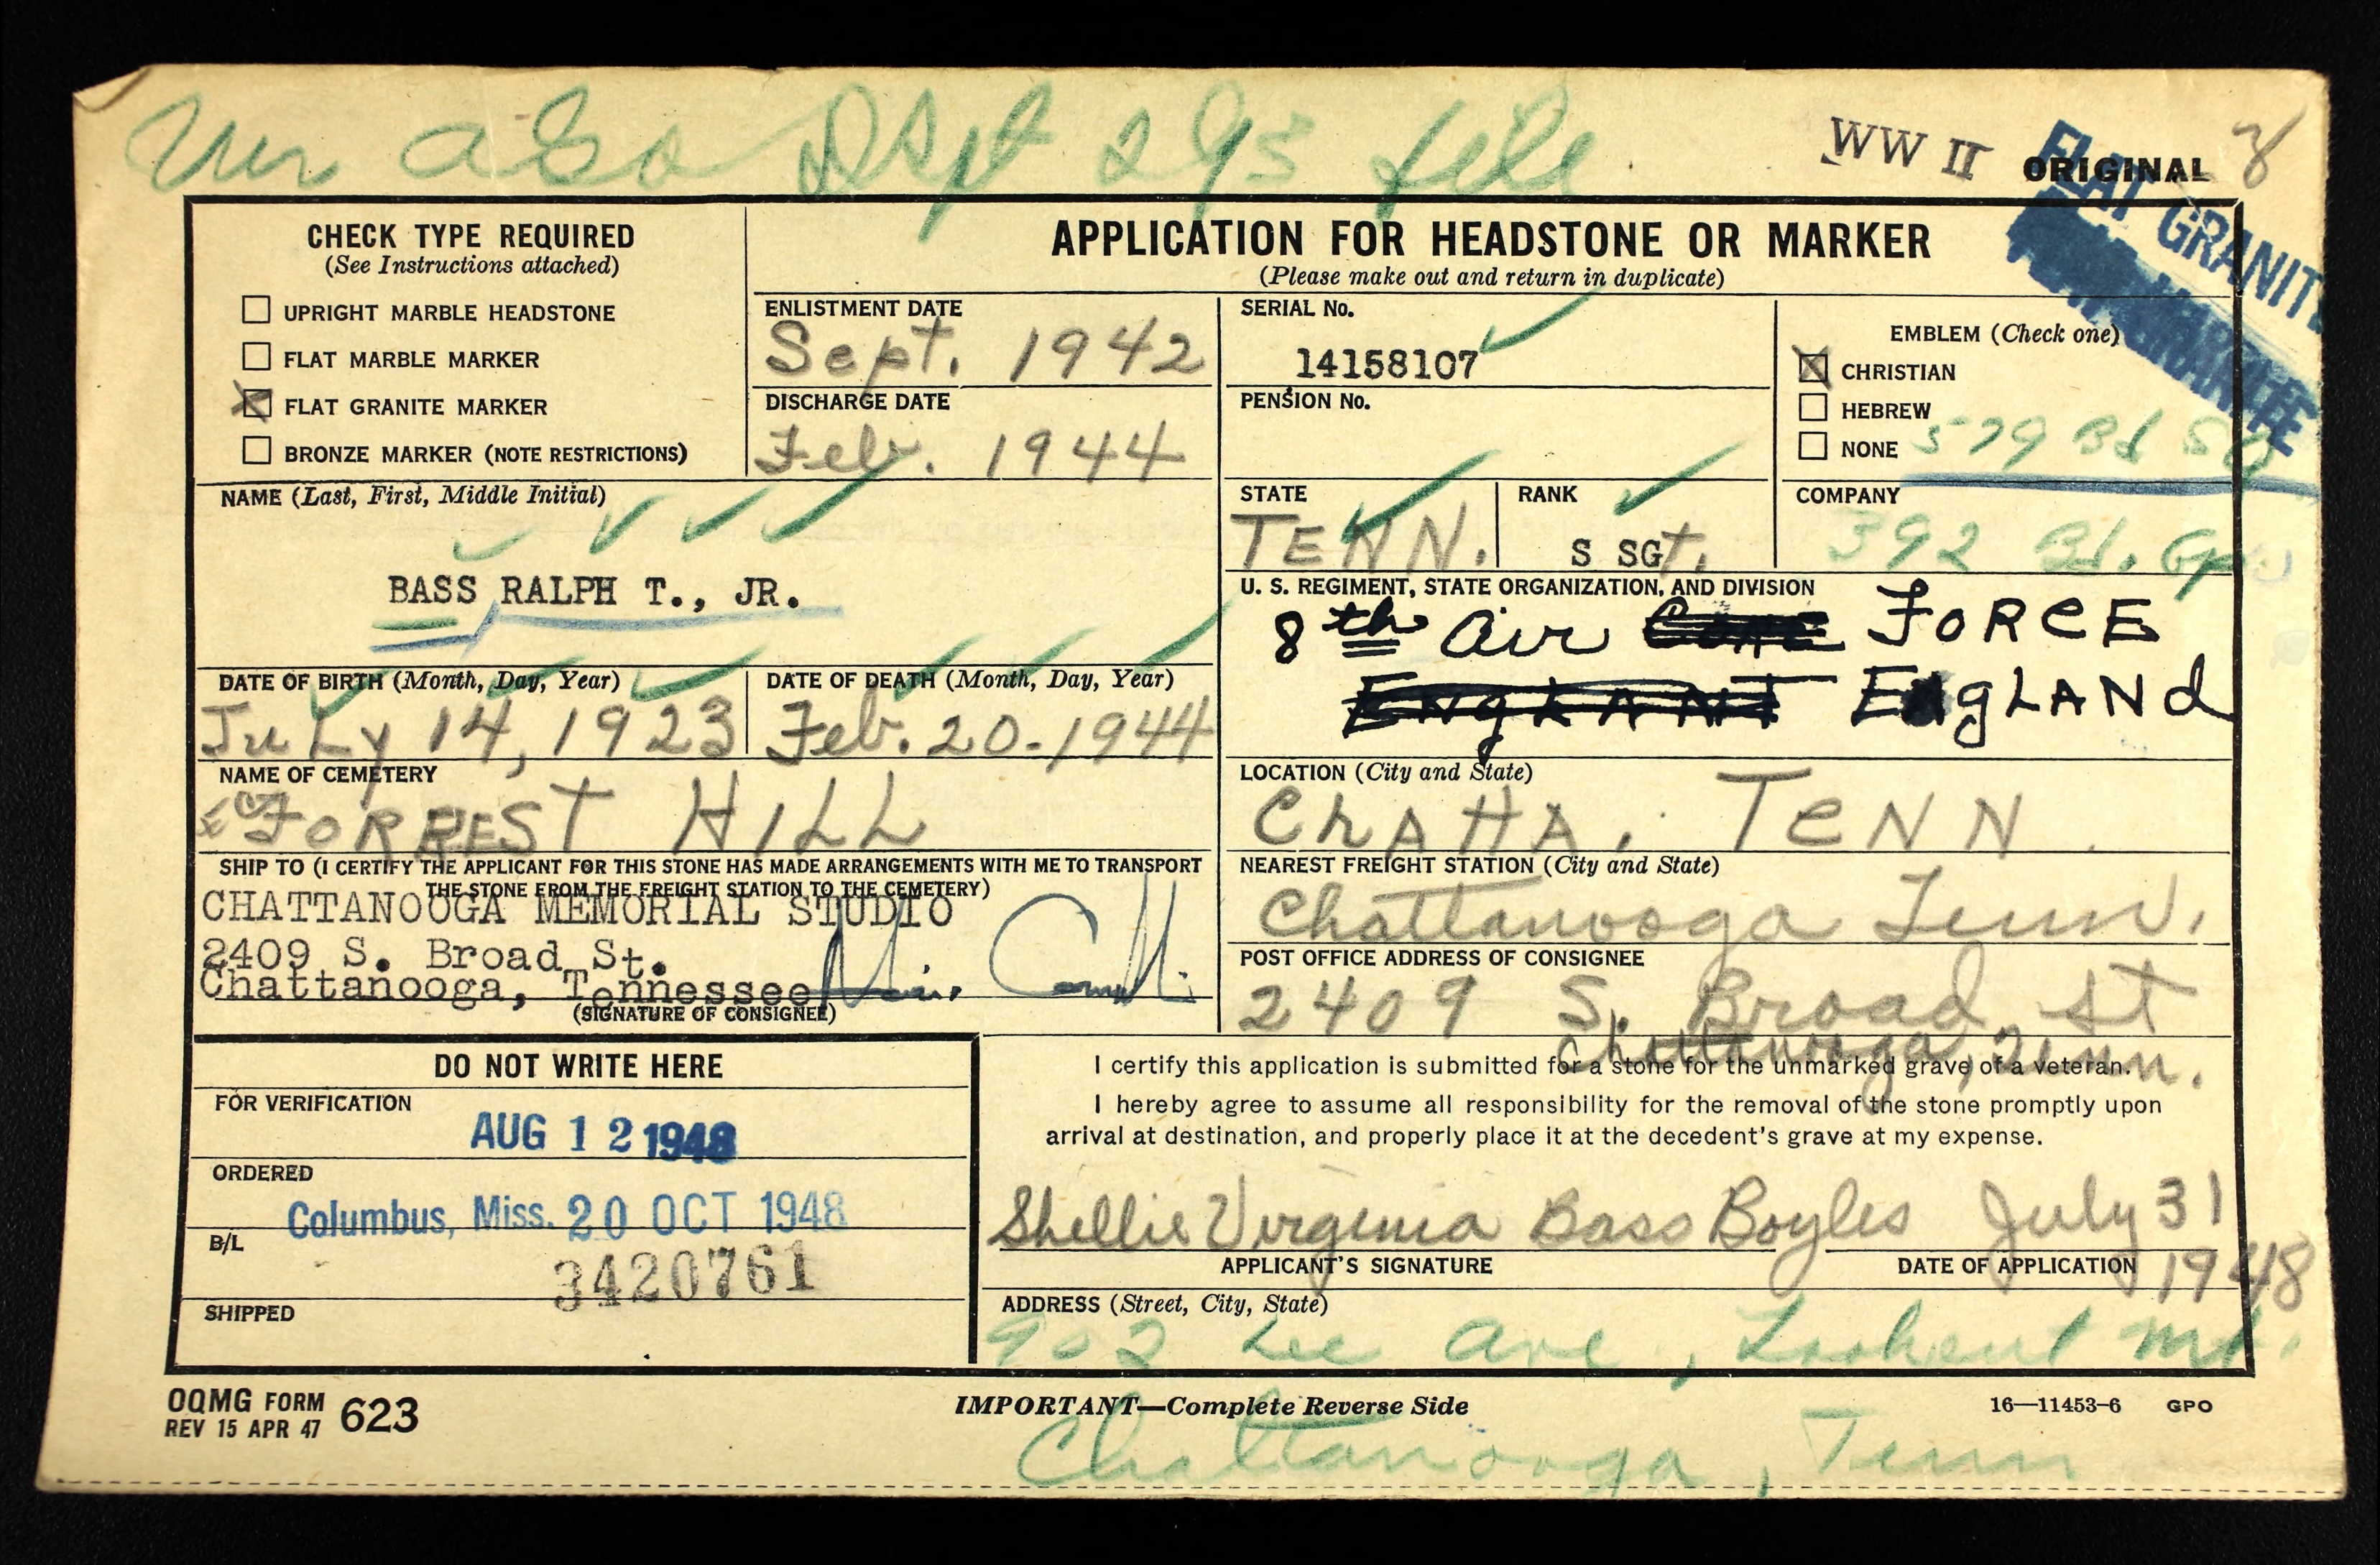 Ver AGO Dept 293 file
WW II
ORIGINAL
FLAT GRANITE
CHECK TYPE REQUIRED
(See Instructions attached)
UPRIGHT MARBLE HEADSTONE
FLAT MARBLE MARKER
FLAT GRANITE MARKER
BRONZE MARKER (NOTE RESTRICTIONS)
APPLICATION FOR HEADSTONE OR MARKER
(Please make out and return in duplicate)
ENLISTMENT DATE
Sept. 1942
DISCHARGE DATE
Feb. 1944
SERIAL No.
14158107
PENSION No.
EMBLEM (Check one)
CHRISTIAN
HEBREW
NONE
579 Bd Sq
NAME (Last, First, Middle Initial)
BASS RALPH T., JR.
STATE
TENN.
RANK
S SGt.
COMPANY
392 Bd. Gp
U. S. REGIMENT, STATE ORGANIZATION, AND DIVISION
8th Air FORCE
ENGLAND ENGLANd
DATE OF BIRTH (Month, Day, Year)
JuLy 14, 1923
DATE OF DEATH (Month, Day, Year)
Feb. 20-1944
NAME OF CEMETERY
FORREST HILL
LOCATION (City and State)
ChATTA. TeNN.
SHIP TO (I CERTIFY THE APPLICANT FOR THIS STONE HAS MADE ARRANGEMENTS WITH ME TO TRANSPORT
THE STONE FROM THE FREIGHT STATION TO THE CEMETERY)
CHATTANOOGA MEMORIAL STUDIO
2409 S. Broad St.
Chattanooga, Tennessee
(SIGNATURE OF CONSIGNEE)
NEAREST FREIGHT STATION (City and State)
Chattanooga Tenn.
POST OFFICE ADDRESS OF CONSIGNEE
2409 S. Broad St
Chattanooga, Tenn.
DO NOT WRITE HERE
FOR VERIFICATION
AUG 12 1948
ORDERED
Columbus, Miss. 20 OCT 1948
B/L
3420761
SHIPPED
I certify this application is submitted for a stone for the unmarked grave of a veteran.
I hereby agree to assume all responsibility for the removal of the stone promptly upon
arrival at destination, and properly place it at the decedent's grave at my expense.
Shellie Virginia Bass Boyles July 31
1948
APPLICANT'S SIGNATURE
DATE OF APPLICATION
ADDRESS (Street, City, State)
902 Lee Ave., Lookout Mt.
Chattanooga, Tenn
OQMG FORM 623
REV 15 APR 47
IMPORTANT—Complete Reverse Side
16—11453-6 GPO